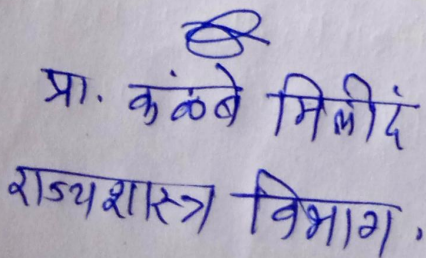 प्रा. कुंळबे मिलीदं
राज्यशास्त्र विभाग.